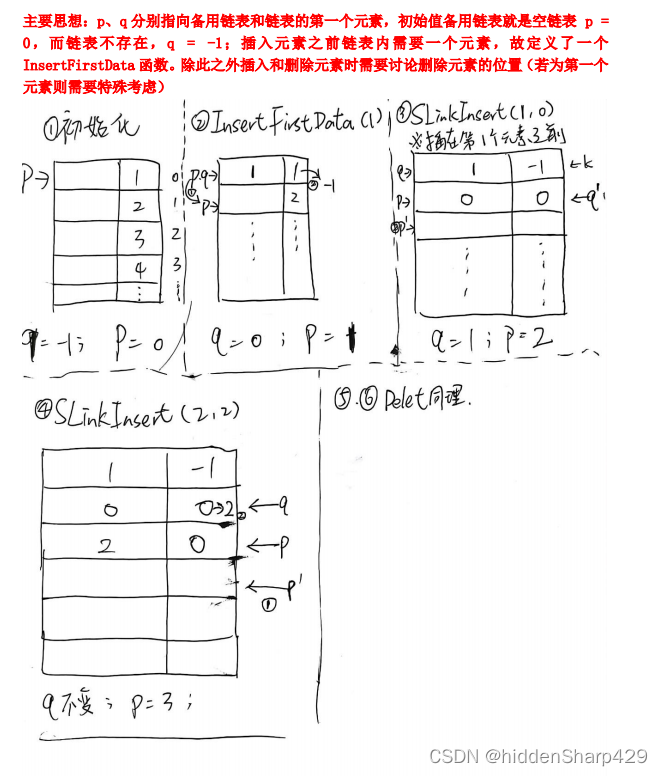 主要思想：p、q分别指向备用链表和链表的第一个元素，初始值备用链表就是空链表 p =
0，而链表不存在，q = -1；插入元素之前链表内需要一个元素，故定义了一个
InsertFirstData 函数。除此之外插入和删除元素时需要讨论删除元素的位置（若为第一个
元素则需要特殊考虑）
①初始化
P→
1 0
2 1
3 2
4 3
q=-1； P=0
②InsertFirstData(1)；
p.q→ 1 1 → -1
p→ 2
q=0；P=1
③SLinkInsert(1,0)
※插在第1个元素之前
q→ 1 -1 ←k
p→ 0 0 ←q'
③p'→
q=1；P=2
④SLinkInsert(2,2)
1 -1
0 0→2 ② ←q
2 0 ←p
←p'
①
q不变；P=3；
⑤.⑥Delet同理.
CSDN @hiddenSharp429